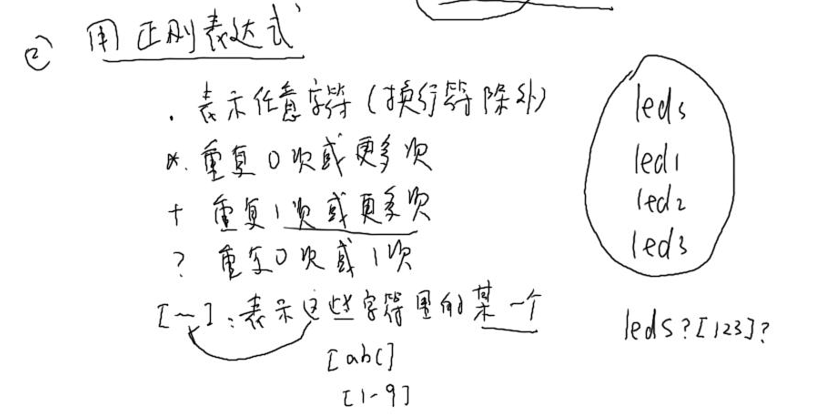 ② 用正则表达式
. 表示任意字符（换行符除外）
*. 重复0次或更多次
+ 重复1次或更多次
? 重复0次或1次
[~]: 表示这些字符里的某一个
[abc]
[1-9]
leds
led1
led2
led3
leds?[123]?